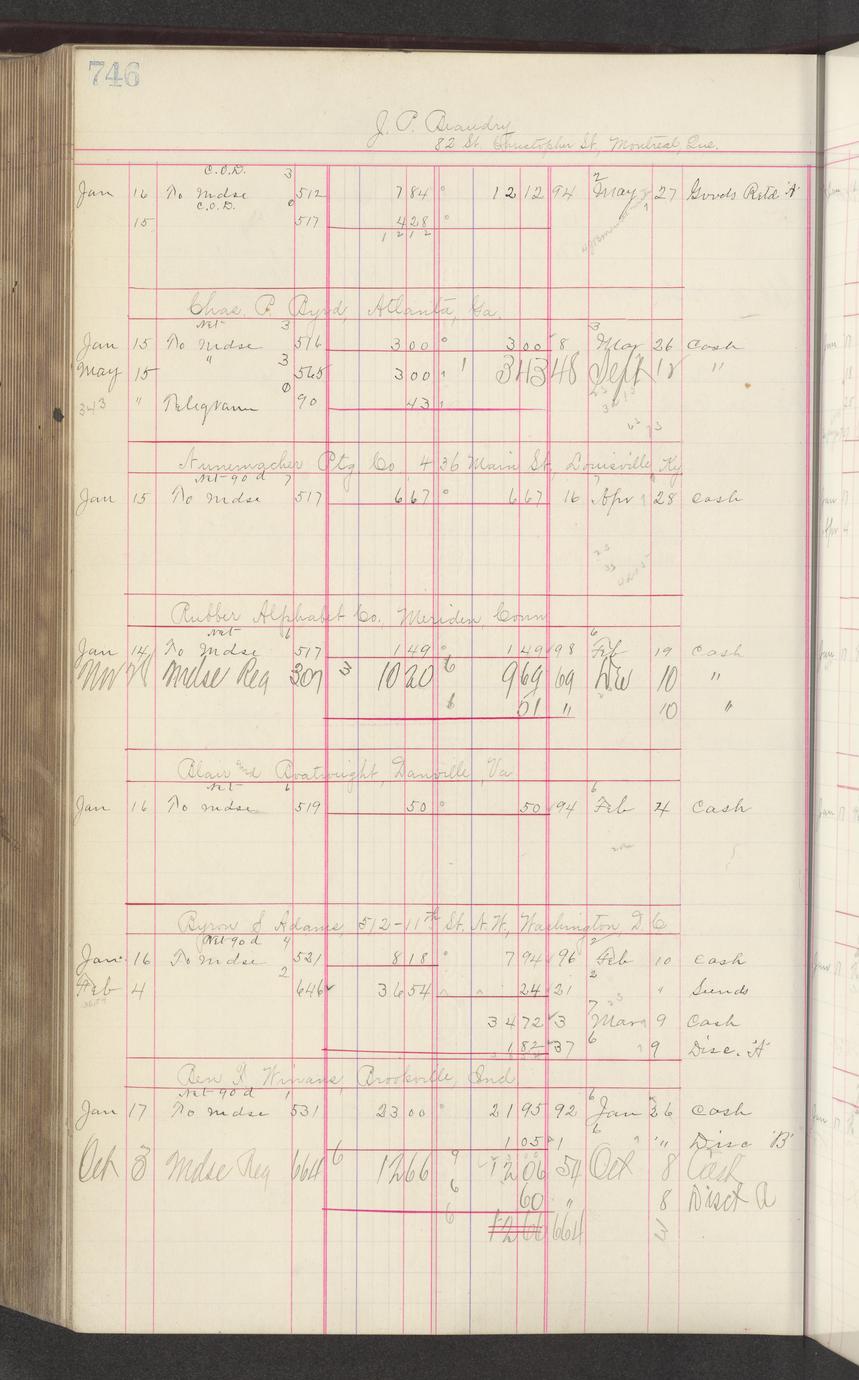 746
J. P. Beaudry
82 St. Christopher St, Montreal, Que.
C.O.D. 3
Jan 16 To Mdse 512 7 84 12 12 94 May 27 Goods Retd "A"
C.O.D.
15 517 4 28
12 12
Chas. P. Byrd, Atlanta, Ga.
Net 3
Jan 15 To Mdse 516 3 00 3 00 8 Mar 26 Cash
May 15 " 3 565 3 00 343 48 Sept 12 "
343 " Telegram 90 43
Nunemacher Ptg Co 436 Main St, Louisville Ky
Net 90 d 7
Jan 15 To Mdse 517 6 67 6 67 16 Apr 28 Cash
Rubber Alphabet Co. Meriden, Conn
Net 6
Jan 14 To Mdse 517 1 49 1 49 98 Feb 19 Cash
Nov 28 Mdse Reg 307 3 10 20 9 69 69 Dec 10 "
51 " 10 "
Blair and Boatwright, Danville, Va
Net 6
Jan 16 To Mdse 519 50 50 94 Feb 4 Cash
Byron S Adams, 512-11th St. N.W, Washington D.C
Net 90 d 4
Jan 16 To Mdse 521 8 18 7 94 96 Feb 10 Cash
Feb 4 2 646 36 54 24 21 " Sunds
34 72 3 Mar 9 Cash
1 82 37 9 Disc. "A"
Ben F. Winans, Brookville, Ind
Net 90 d 1
Jan 17 To Mdse 531 23 00 21 95 92 Jan 26 Cash
1 05 1 " " Disc "B"
Oct 3 Mdse Reg 664 6 12 66 12 06 54 Oct 8 Cash
60 " 8 Disct A
12 66 664